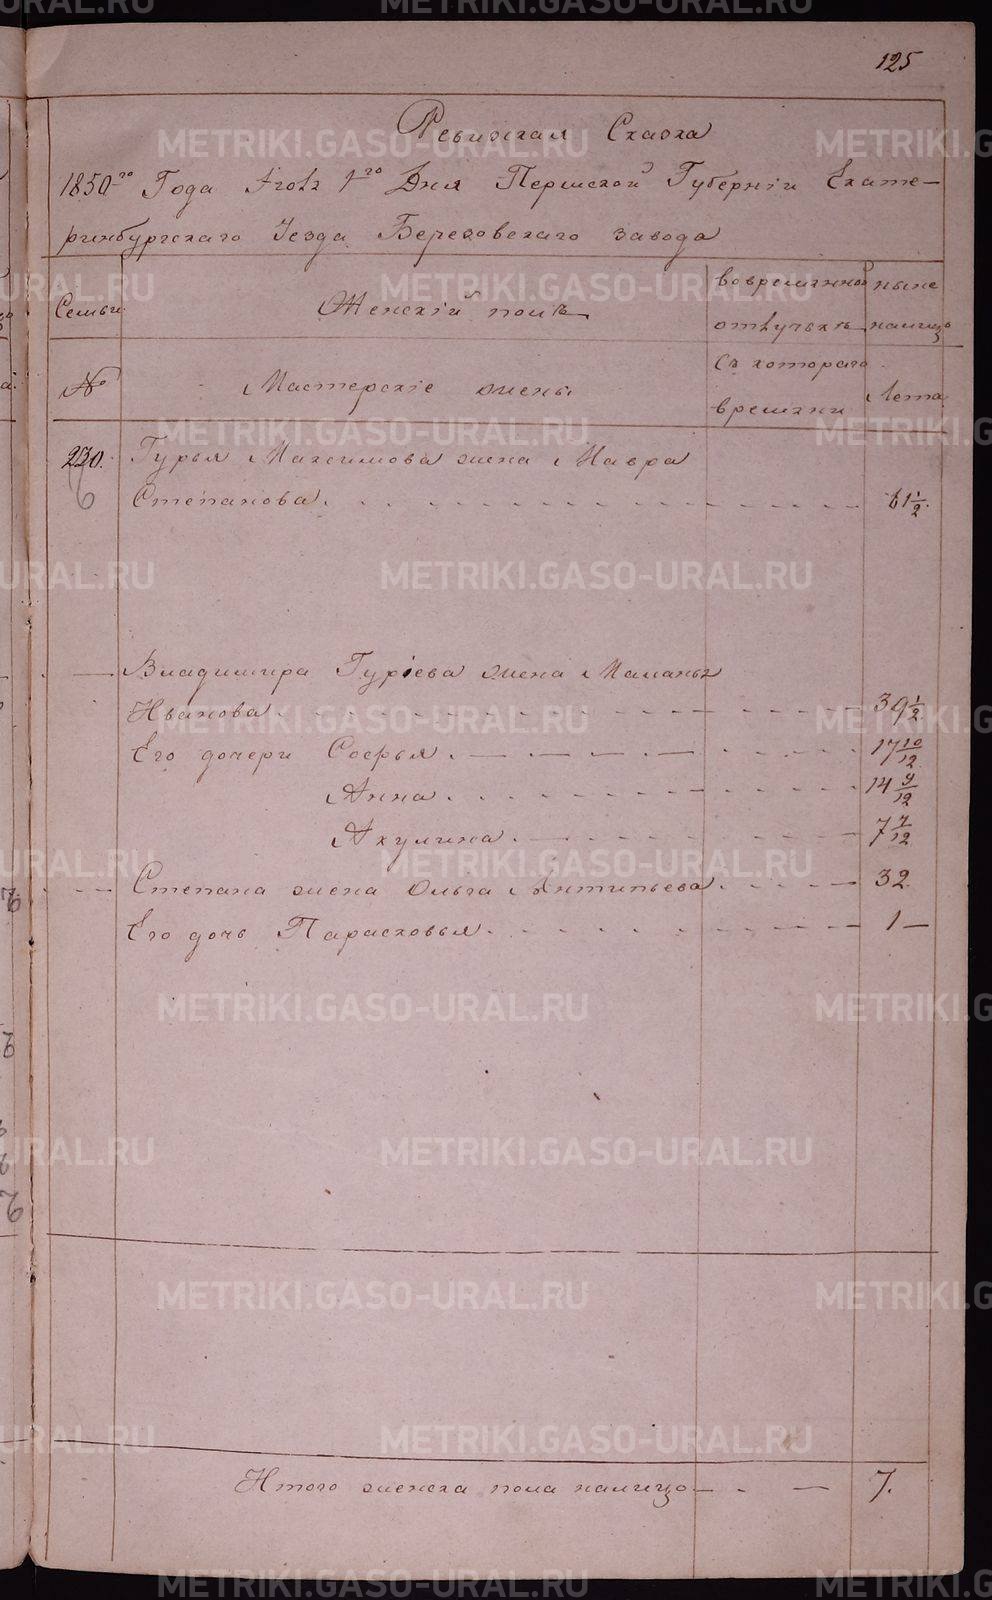 125
Ревизская Сказка
1850го Года 1го Дня Пермской Губернiи Екате-
ринбургскаго Уезда Березовскаго завода
Семьи Женскiй полъ во временной ныне
отлучькѣ налицо
№ Мастерскiе жены съ котораго Лета
времени
230. Гурья Максимова жена Мавра
6
Степанова 61 1/2
Владимира Гурiева жена Маланья
Иванова 39 1/2
Его дочери Софья 17 10/12
Анна 14 9/12
Акулина 7 7/12
Степана жена Ольга Антипьева 32.
Его дочь Парасковья 1
Итого женска пола налицо 7.
METRIKI.GASO-URAL.RU